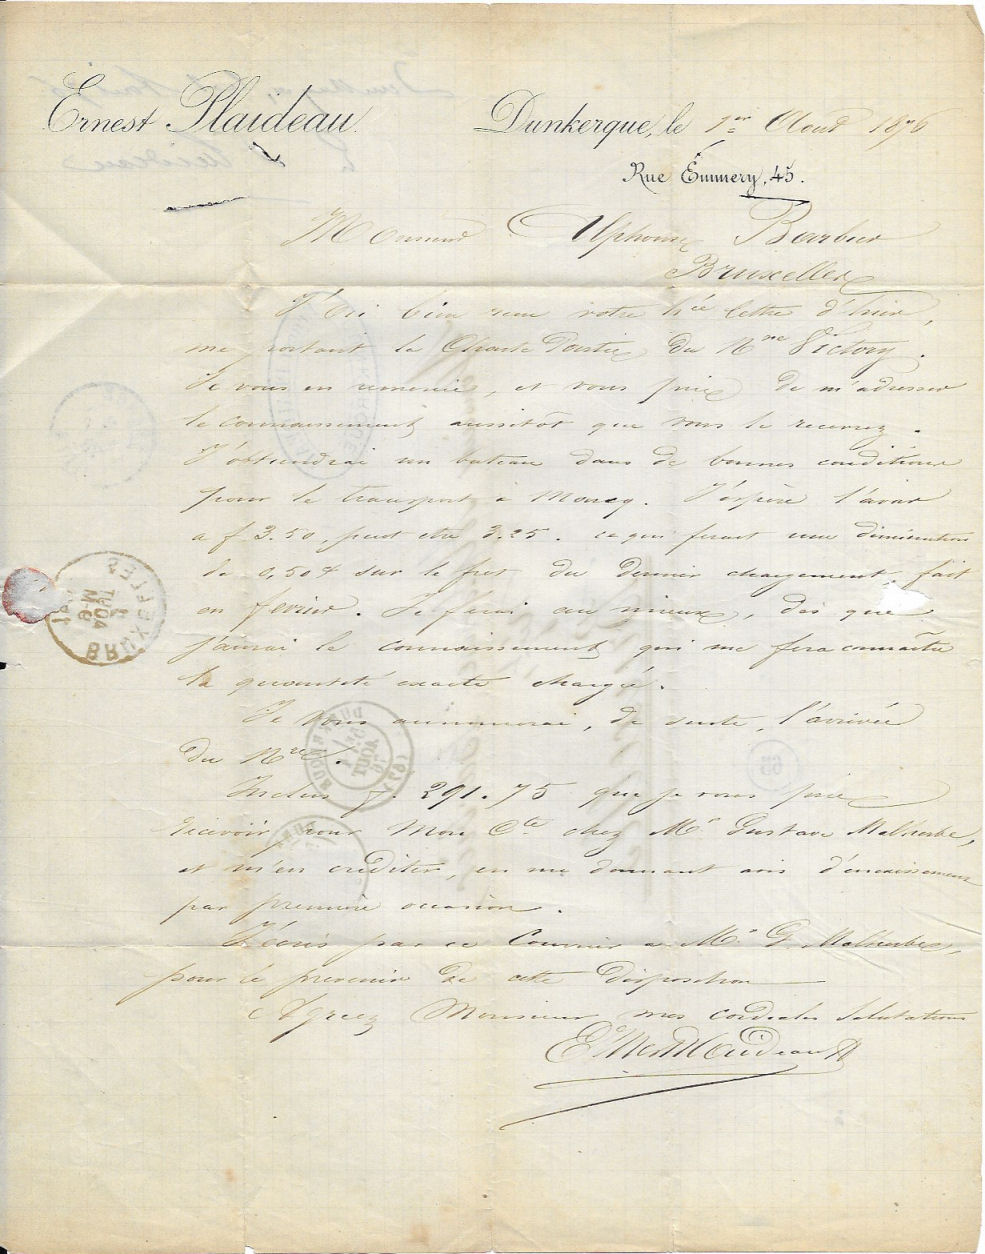 Ernest Plaideau
Dunkerque, le 1er Aout 1876
Rue Emmery, 45.
Monsieur Alphonse Barbier
Bruxelles
J'ai bien reçu votre lettre d'hier,
me portant la Charte Partie du Nre Victory.
Je vous en remercie, et vous prie de m'adresser
le connaissement aussitôt que vous le recevrez.
J'obtiendrai un bateau dans de bonnes conditions
pour le transport à Mourcq. J'espère l'avoir
a f 3.50, peut etre 3.25. ce qui ferait une diminution
de 0,50 sur le fret du dernier chargement fait
en fevrier. Je ferai au mieux, dès que
j'aurai le connaissement qui me fera connaître
la quantité exacte chargée.
Je vous annoncerai, de suite, l'arrivée
du Nre.
Inclus f. 291.75 que je vous prie
recevoir pour Mon Cte chez Mr Gustave Malherbe,
et m'en créditer, en me donnant avis d'encaissement
par première occasion.
J'écris par ce Courrier a Mr G. Malherbe,
pour le prevenir de cette disposition
Agreez Monsieur mes cordiales Salutations
Ernest Plaideau
BRUXELLES
AOUT
DUNKERQUE
AOUT